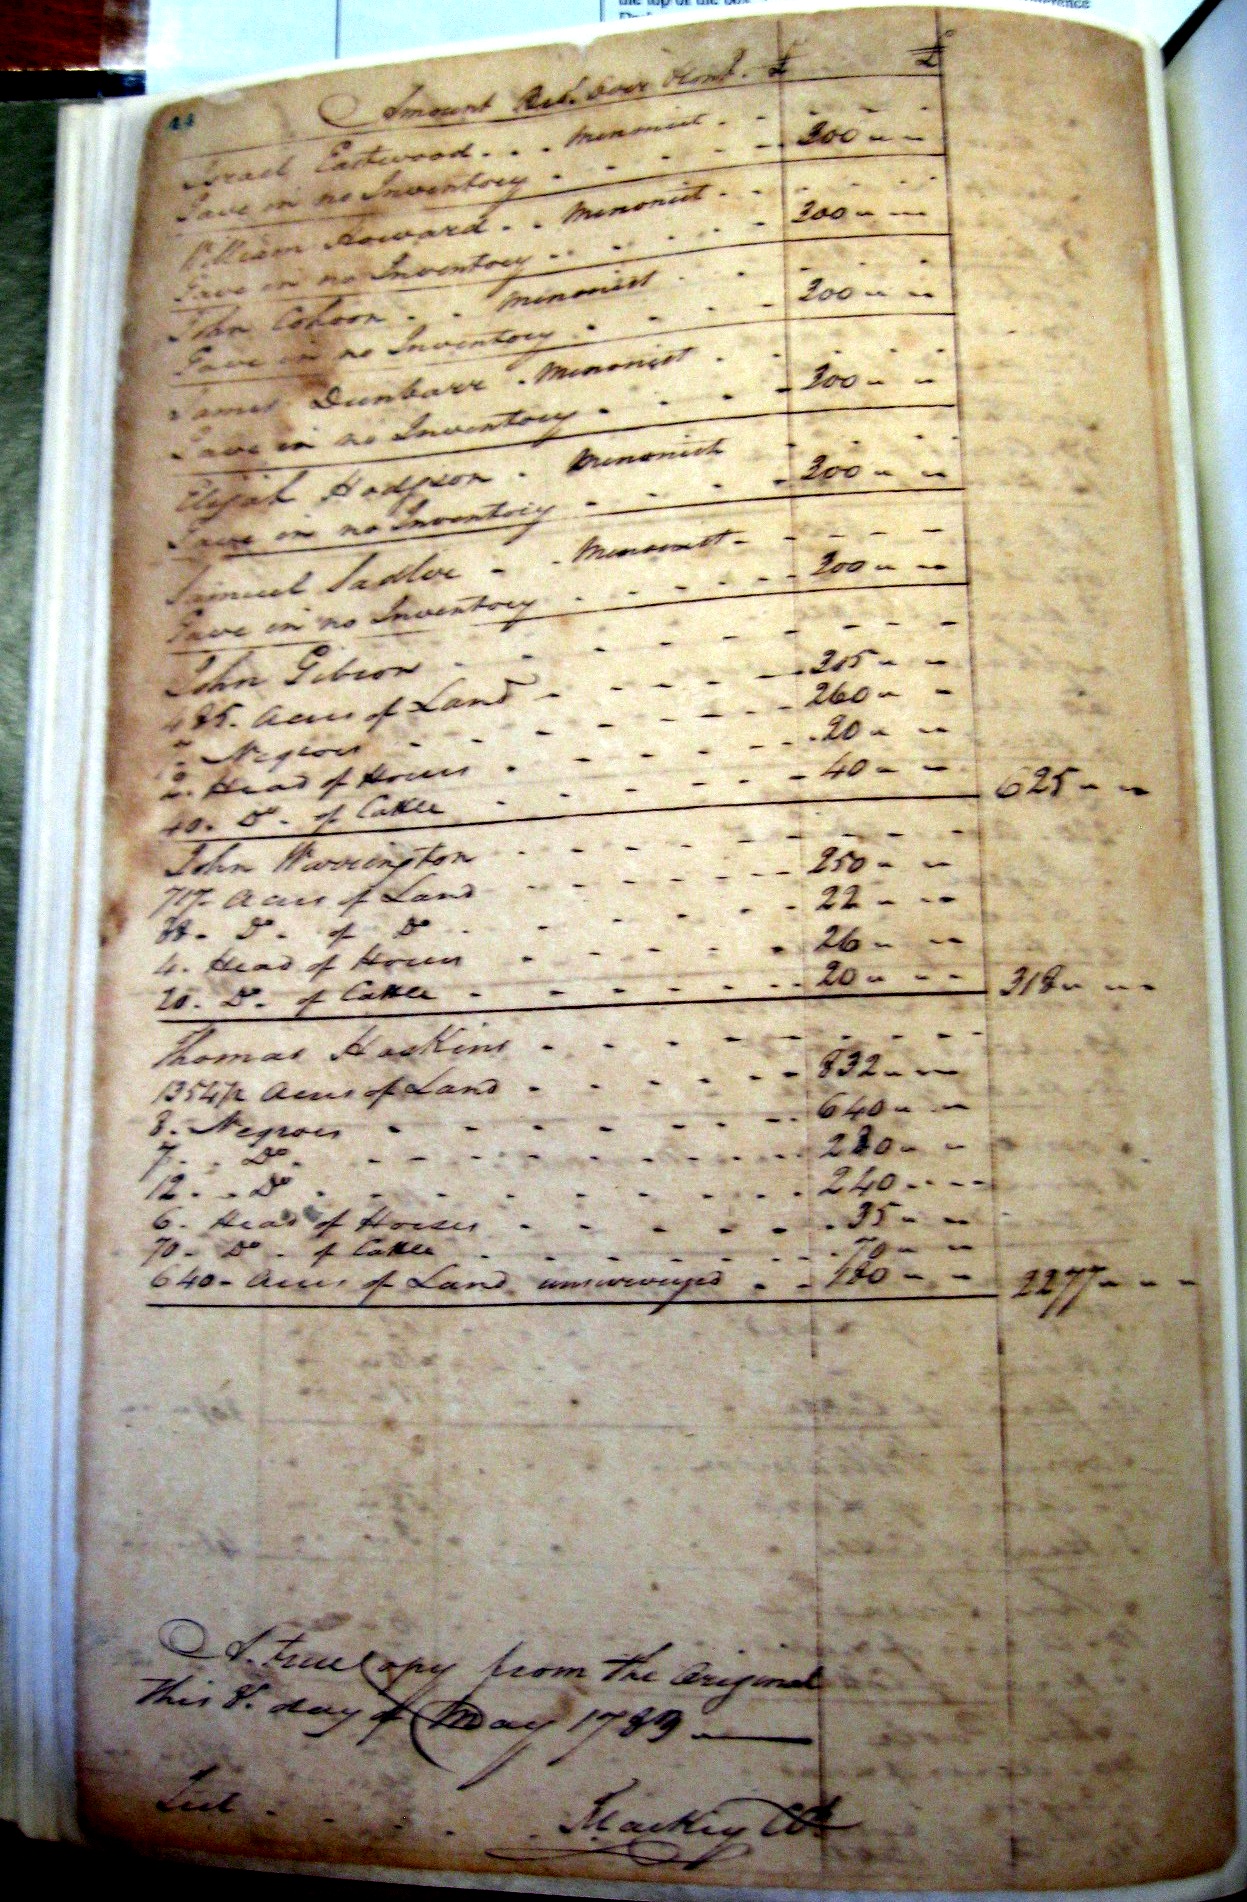 the top of the box
44
Amount Brt. Over £ £
Israel Eastwood . . . Menonist
Gave in no Inventory 200
William Howard . . Menonist
Gave in no Inventory 200
John Cohoon . . Menonist
Gave in no Inventory 200
James Dunbarr . Menonist
Gave in no Inventory 200
Elijah Hodgson . Menonist
Gave in no Inventory 200
Samuel Sadlor . Menonist
Gave in no Inventory 200
John Gibson
485. Acres of Land 305
Negroes 260
2. Head of Horses 20
40. Do. of Cattle 40 625
John Warrington
717 Acres of Land 250
88. Do. of Do 22
4. Head of Horses 26
20. Do. of Cattle 20 318
Thomas Hoskins
1354½ Acres of Land 832
8. Negroes 640
7. Do. 280
12. Do 240
6. Head of Horses 35
70. Do. of Cattle 70
640. Acres of Land unsurveyed 180 2277
A. true Copy from the Original
this 8. day of May 1789
Test Mackey Clk